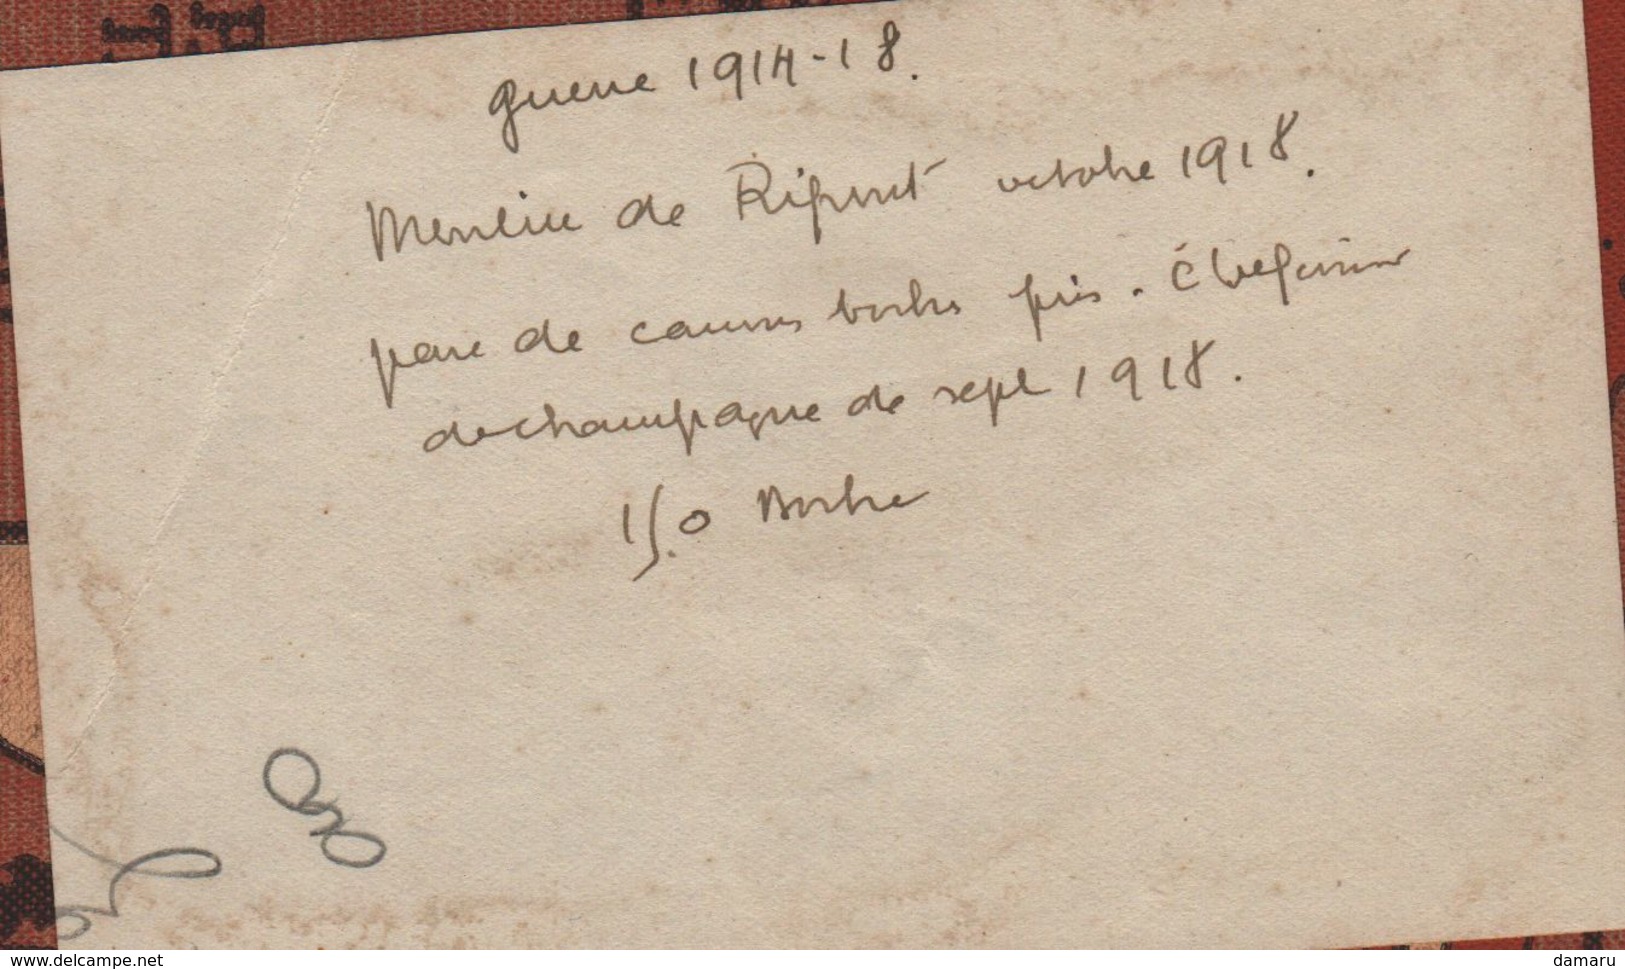 guerre 1914-18.
Moulin de Ripont octobre 1918.
parc de canons boches pris.
de champagne de sept 1918.
150 Boche
www.delcampe.net
damaru